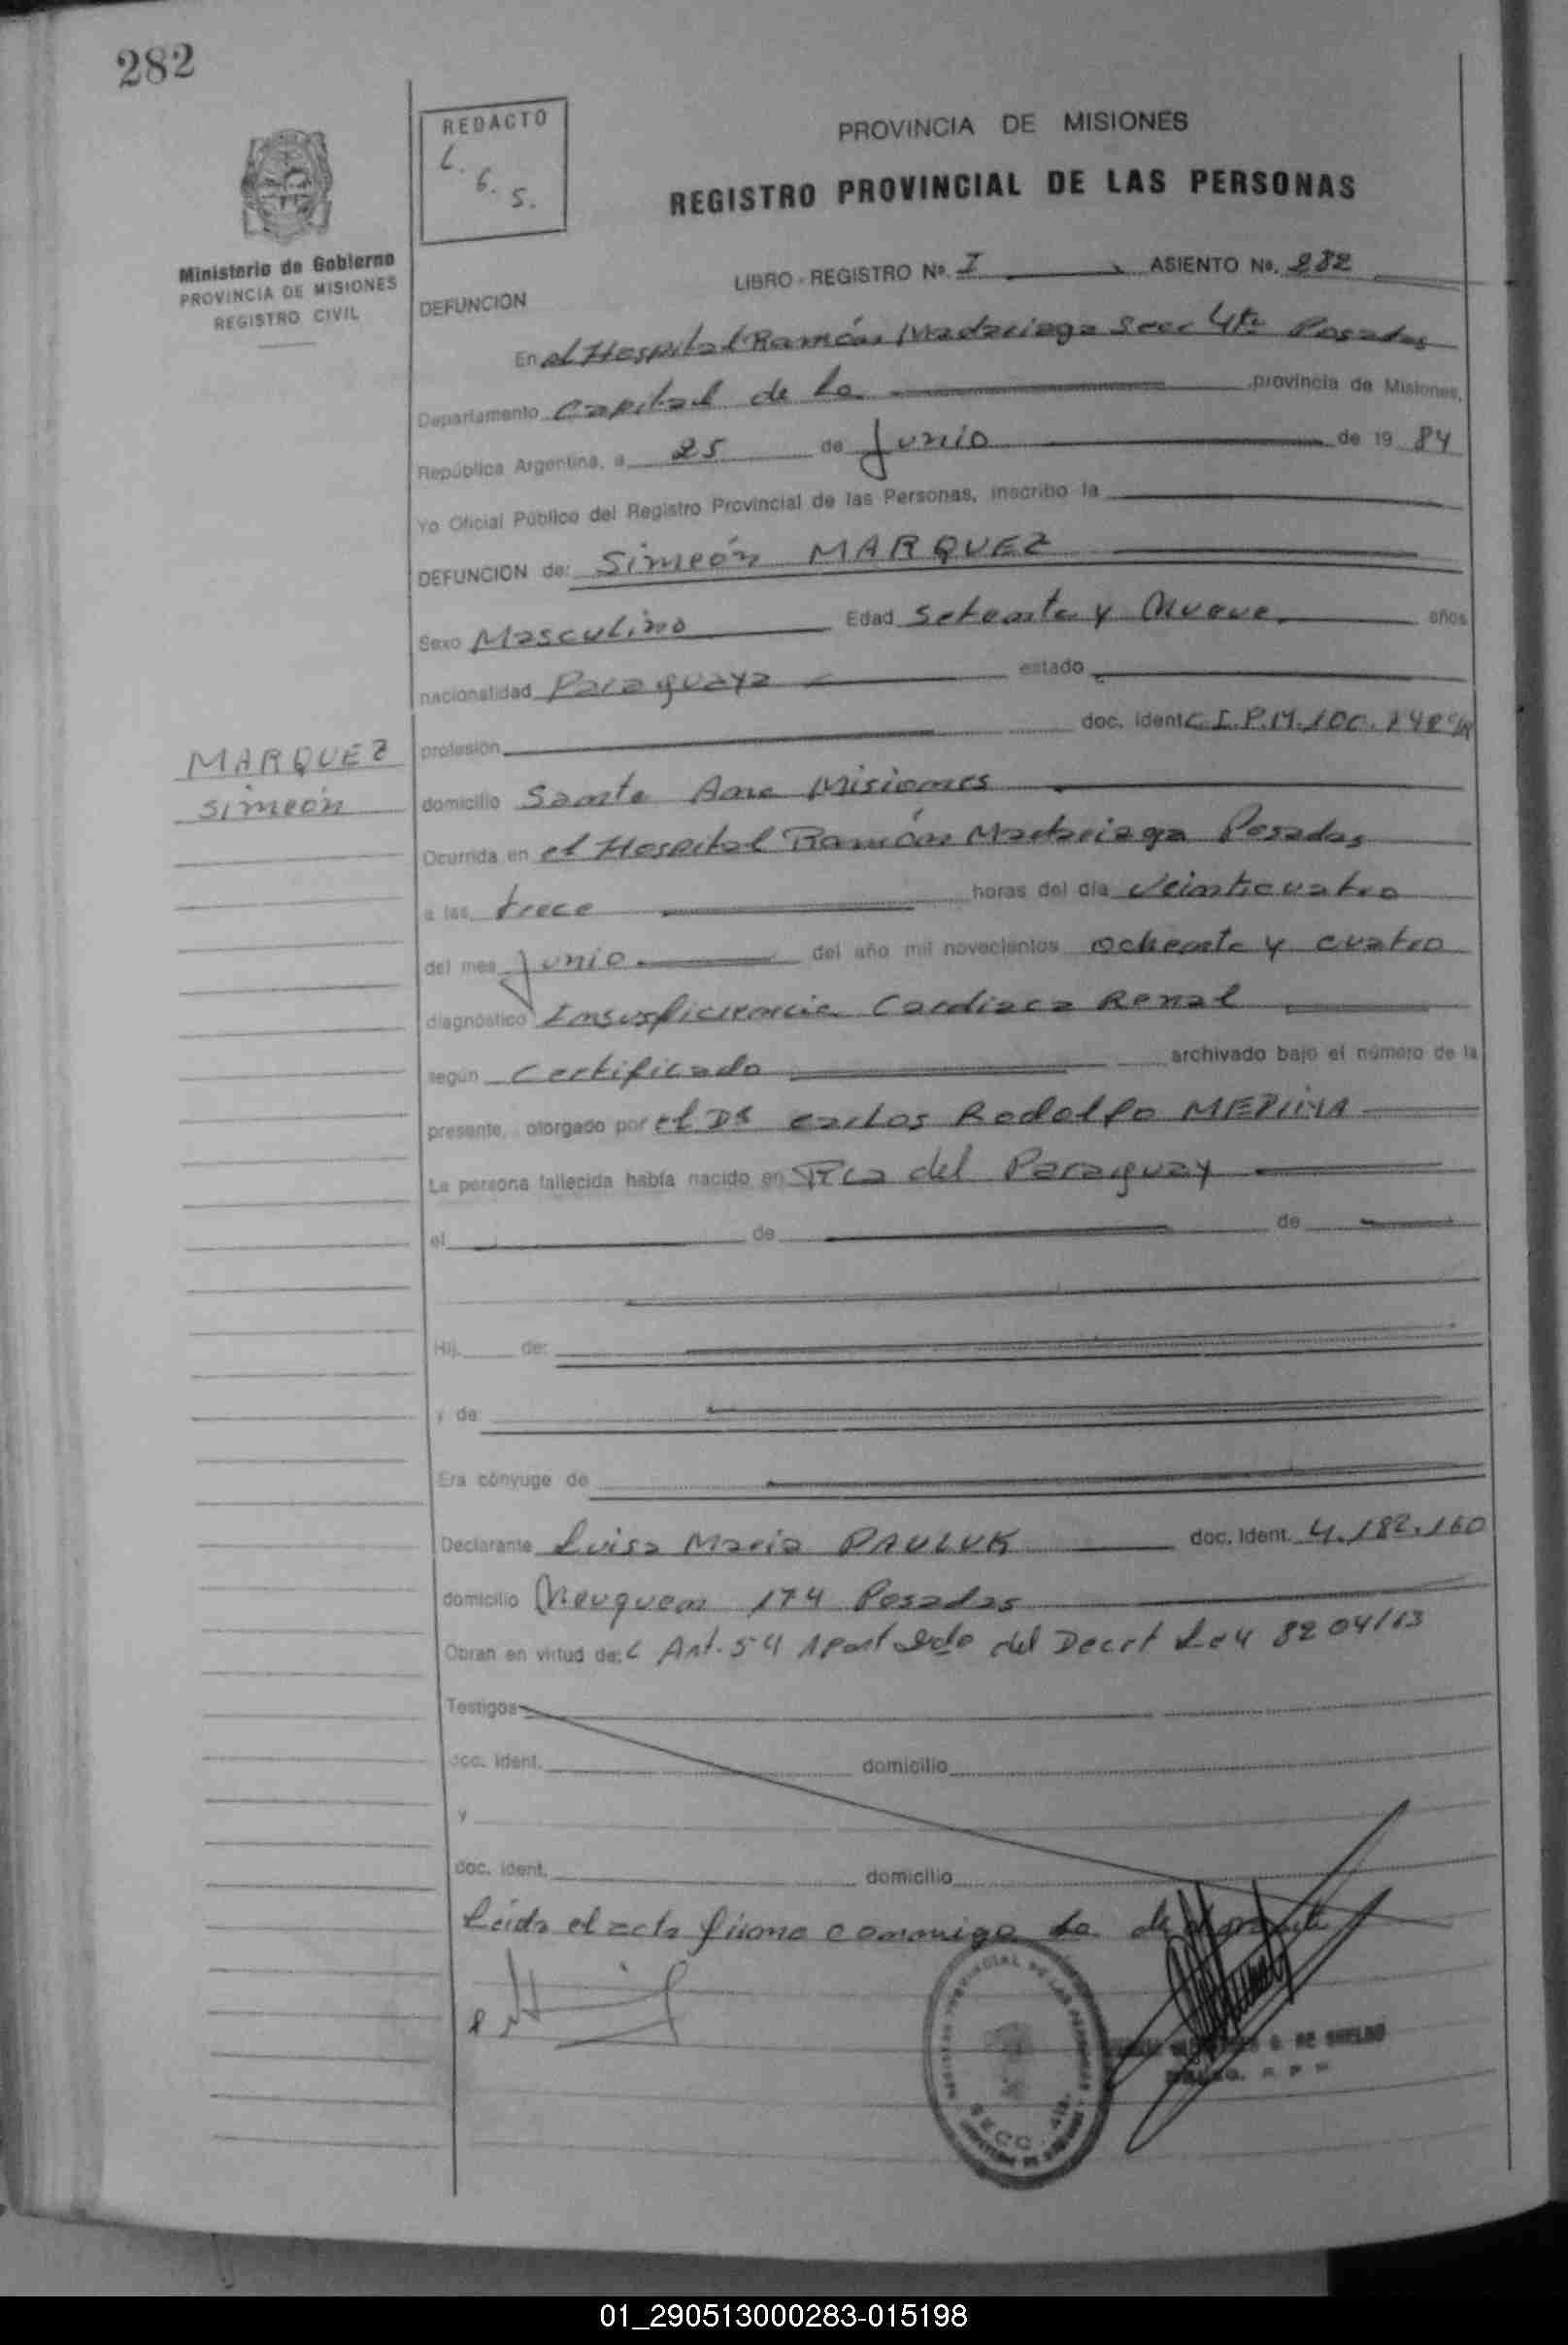 282
REDACTO
L.
6.
5.
PROVINCIA DE MISIONES
REGISTRO PROVINCIAL DE LAS PERSONAS
Ministerio de Gobierno
PROVINCIA DE MISIONES
REGISTRO CIVIL
LIBRO - REGISTRO Nº. I ASIENTO Nº. 282
DEFUNCION
En el Hospital Ramón Madariaga Secc 4ta Posadas
Departamento Capital de la provincia de Misiones,
República Argentina, a 25 de Junio de 19 84
Yo Oficial Público del Registro Provincial de las Personas, inscribo la
DEFUNCION de: Simeón MARQUEZ
Sexo Masculino Edad Setenta y Nueve años
nacionalidad Paraguaya estado
profesión doc. ident C.I.P.M.
MARQUEZ
Simeón
domicilio Santa Ana Misiones
Ocurrida en el Hospital Ramón Madariaga Posadas
a las trece horas del día Veinticuatro
del mes Junio del año mil novecientos ochenta y cuatro
diagnóstico Insuficiencia Cardiaca Renal
según Certificado archivado bajo el número de la
presente, otorgado por el Dr Carlos Rodolfo MEDINA
La persona fallecida había nacido en Rca del Paraguay
el de de
Hij de:
y de:
Era cónyuge de
Declarante Luisa Maria PAULUK doc. ident. 4.182.160
domicilio Neuquen 174 Posadas
Obran en virtud de: L Art. 54 Apart 2do del Decrt Ley 8204/63
Testigos
doc. ident. domicilio
y
doc. ident. domicilio
Leida el acta firma conmigo la declarante
REGISTRO PROVINCIAL DE LAS PERSONAS
SECC. 4ta.
01_290513000283-015198